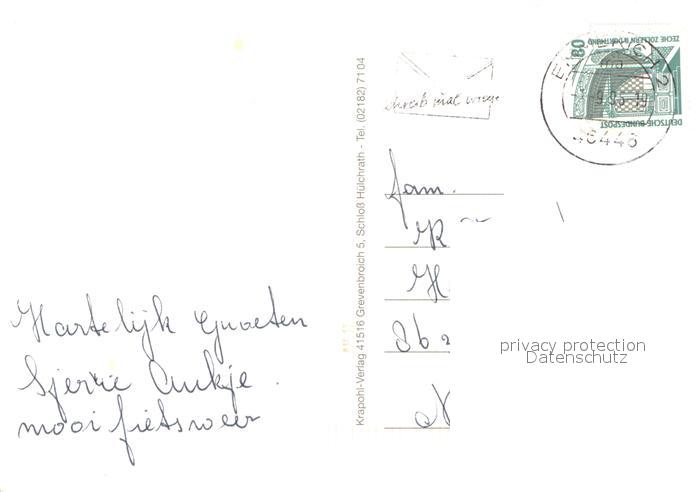 Hartelijk Groeten
Sjerrie Aukje.
mooi fietsweer
Krapohl-Verlag 41516 Grevenbroich 5, Schloß Hülchrath - Tel. (02182) 71 04
Schreib mal wieder
80
ZECHE ZOLLERN II DORTMUND
DEUTSCHE BUNDESPOST
EMMERICH
46446
fam.
privacy protection
Datenschutz